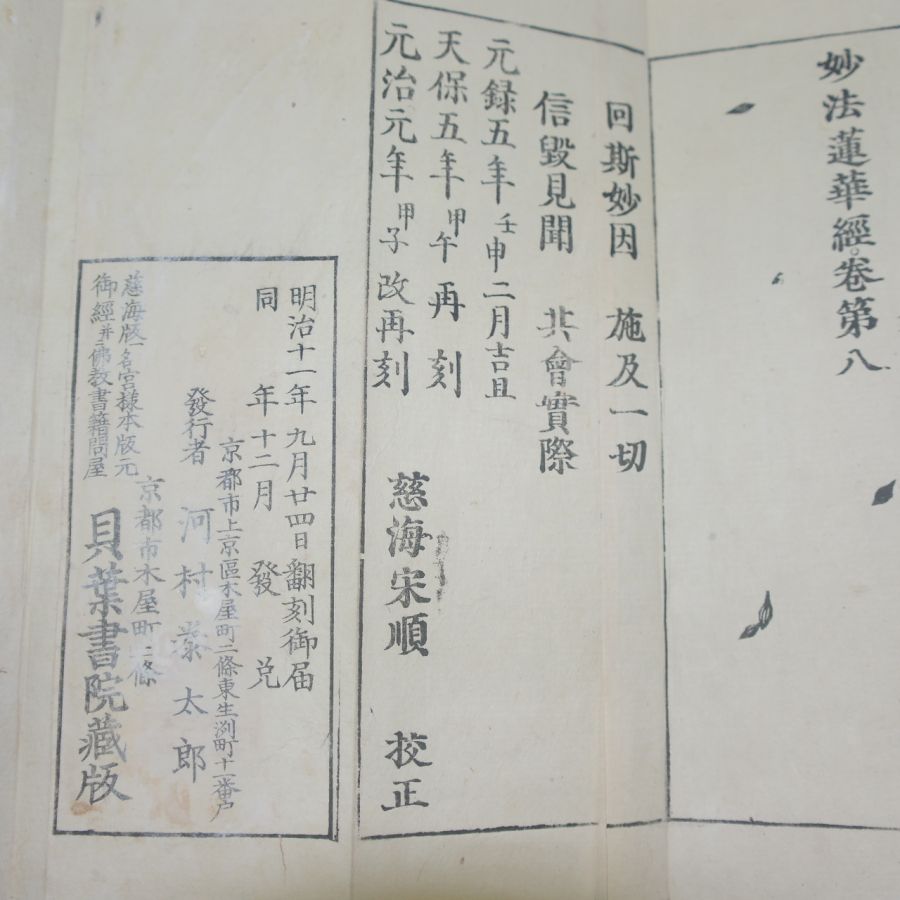 妙法蓮華經卷第八
回斯妙因 施及一切
信毀見聞 共會實際
元録五年壬申二月吉旦
天保五年甲午再刻
元治元年甲子改再刻 慈海宋順 挍正
明治十一年九月廿四日翻刻御届
同 年十二月 發兌
京都市上京區木屋町二條東生洲町十一番戸
發行者 河村泰太郎
京都市木屋町二條
慈海版一名宮様本版元
御經并ニ佛教書籍問屋
貝葉書院藏版